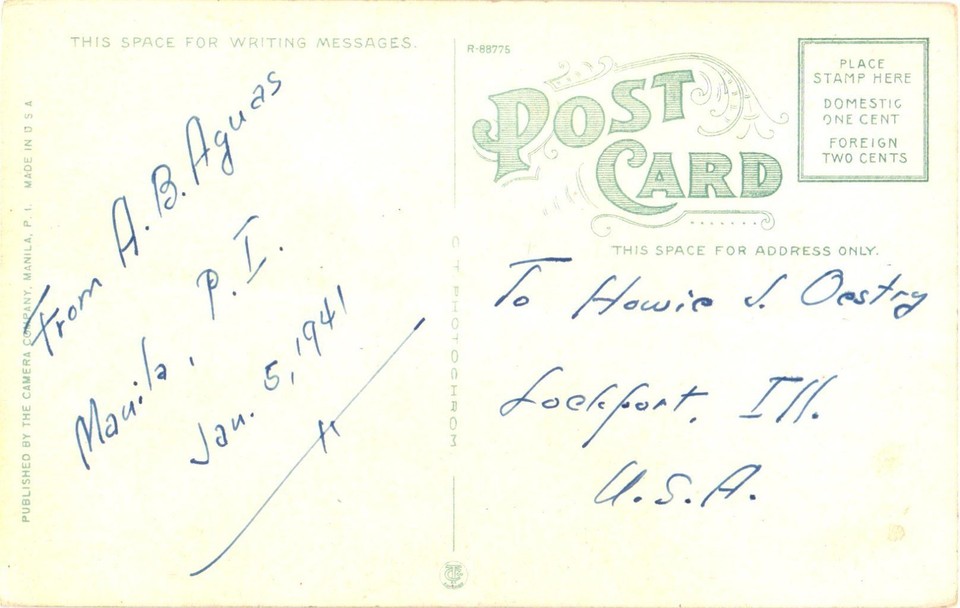 THIS SPACE FOR WRITING MESSAGES.
From A. B. Aguas
Manila, P. I.
Jan. 5, 1941
PUBLISHED BY THE CAMERA COMPANY, MANILA, P. I. MADE IN U S A
C T PHOTOCHROM
R-88775
POST
CARD
PLACE
STAMP HERE
DOMESTIC
ONE CENT
FOREIGN
TWO CENTS
THIS SPACE FOR ADDRESS ONLY.
To Howie J. Oestry
Lockport, Ill.
U.S.A.